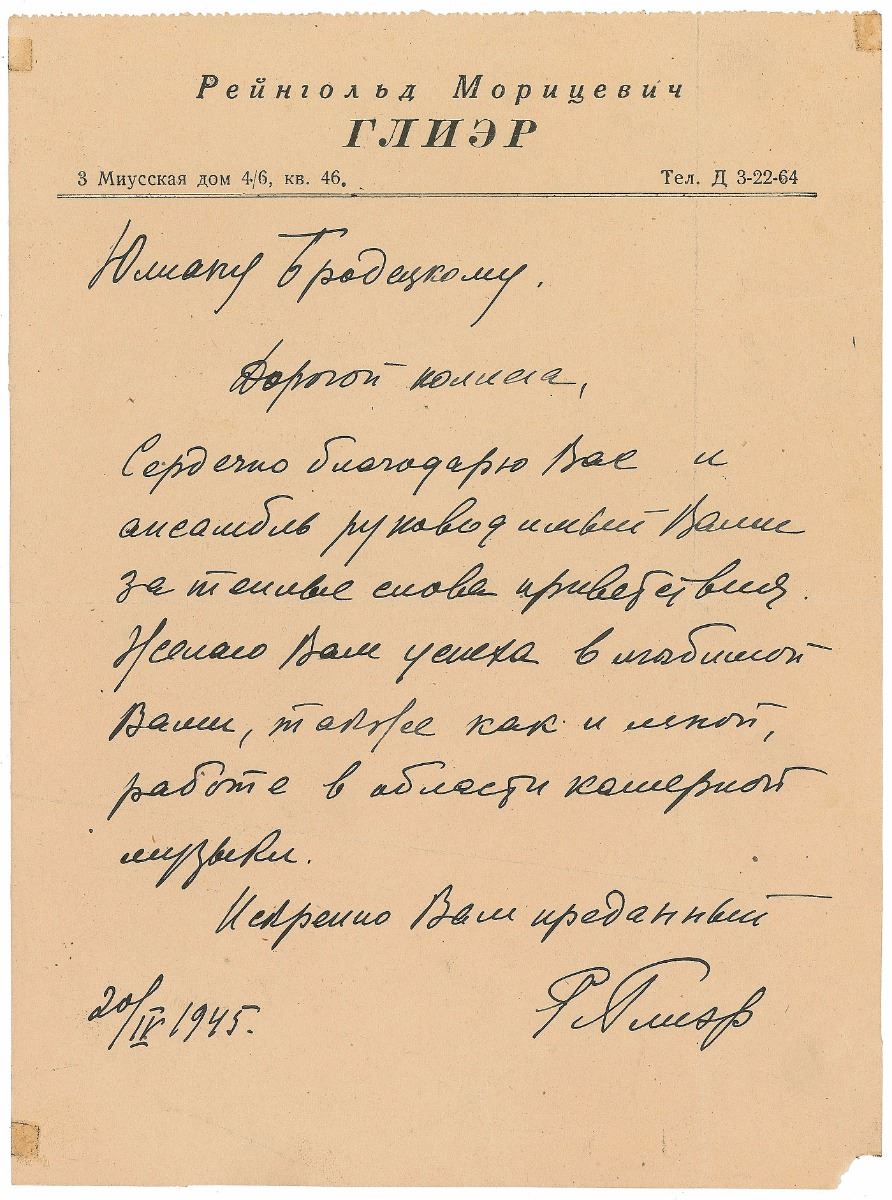 Рейнгольд Морицевич
ГЛИЭР
3 Миусская дом 4/6, кв. 46.
Тел. Д 3-22-64
Юлиану Бродецкому.
Дорогой коллега,
Сердечно благодарю Вас и
ансамбль руководимый Вами
за теплые слова приветствия.
Желаю Вам успеха в любимой
Вами, также как и мной,
работе в области камерной
музыки.
Искренно Вам преданный
20/IV 1945.
Р. Глиэр